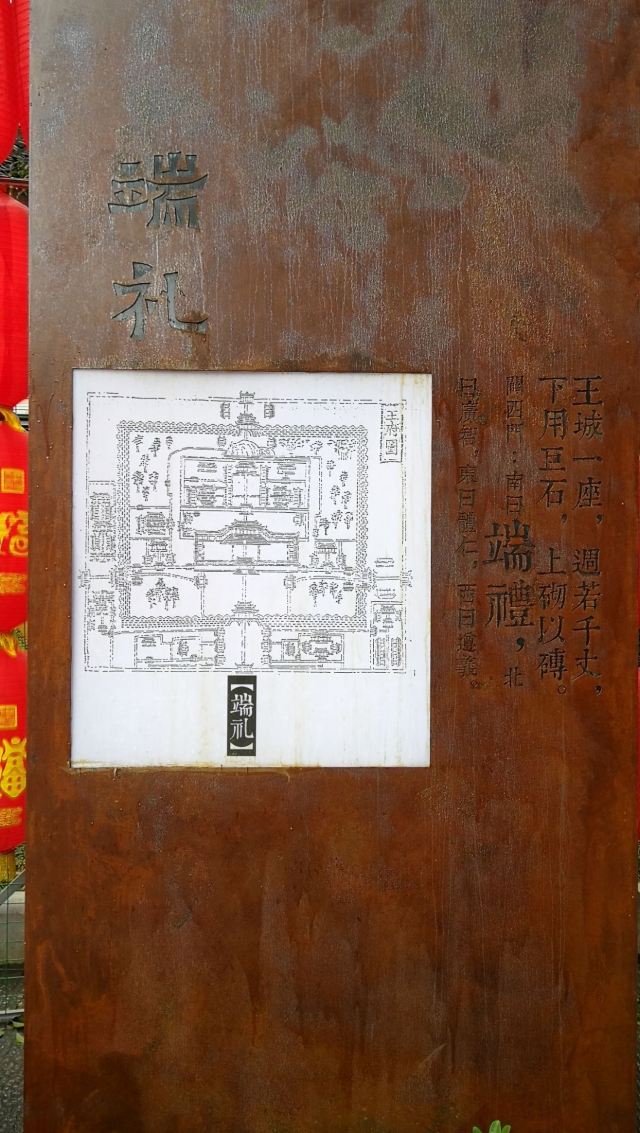 端
礼
王城一座，週若千丈，
下用巨石，上砌以磚。
闢四門：南曰端禮，北
曰廣智，東曰體仁，西曰遵義。
王府图
【端礼】
福